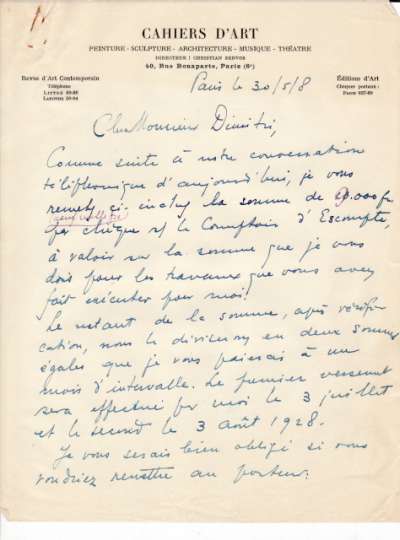 CAHIERS D'ART
PEINTURE - SCULPTURE - ARCHITECTURE - MUSIQUE - THÉATRE
DIRECTEUR : CHRISTIAN ZERVOS
40, Rue Bonaparte, Paris (6e)
Revue d'Art Contemporain
Téléphone
Éditions d'Art
Cheques postaux :
Paris le 30/5/8
Cher Monsieur Dimitri,
Comme suite à notre conversation
téléphonique d'aujourd'hui, je vous
remets ci-inclus la somme de .000 fr
par chèque s/ le Comptoir d'Escompte,
à valoir sur la somme que je vous
dois pour les travaux que vous avez
fait exécuter pour moi.
Le restant de la somme, après vérifi-
cation, nous le diviserons en deux sommes
égales que je vous paierais à un
mois d'intervalle. Le premier versement
sera effectué par moi le 3 juillet
et le second le 3 août 1928.
Je vous serais bien obligé si vous
voudriez remettre au porteur.